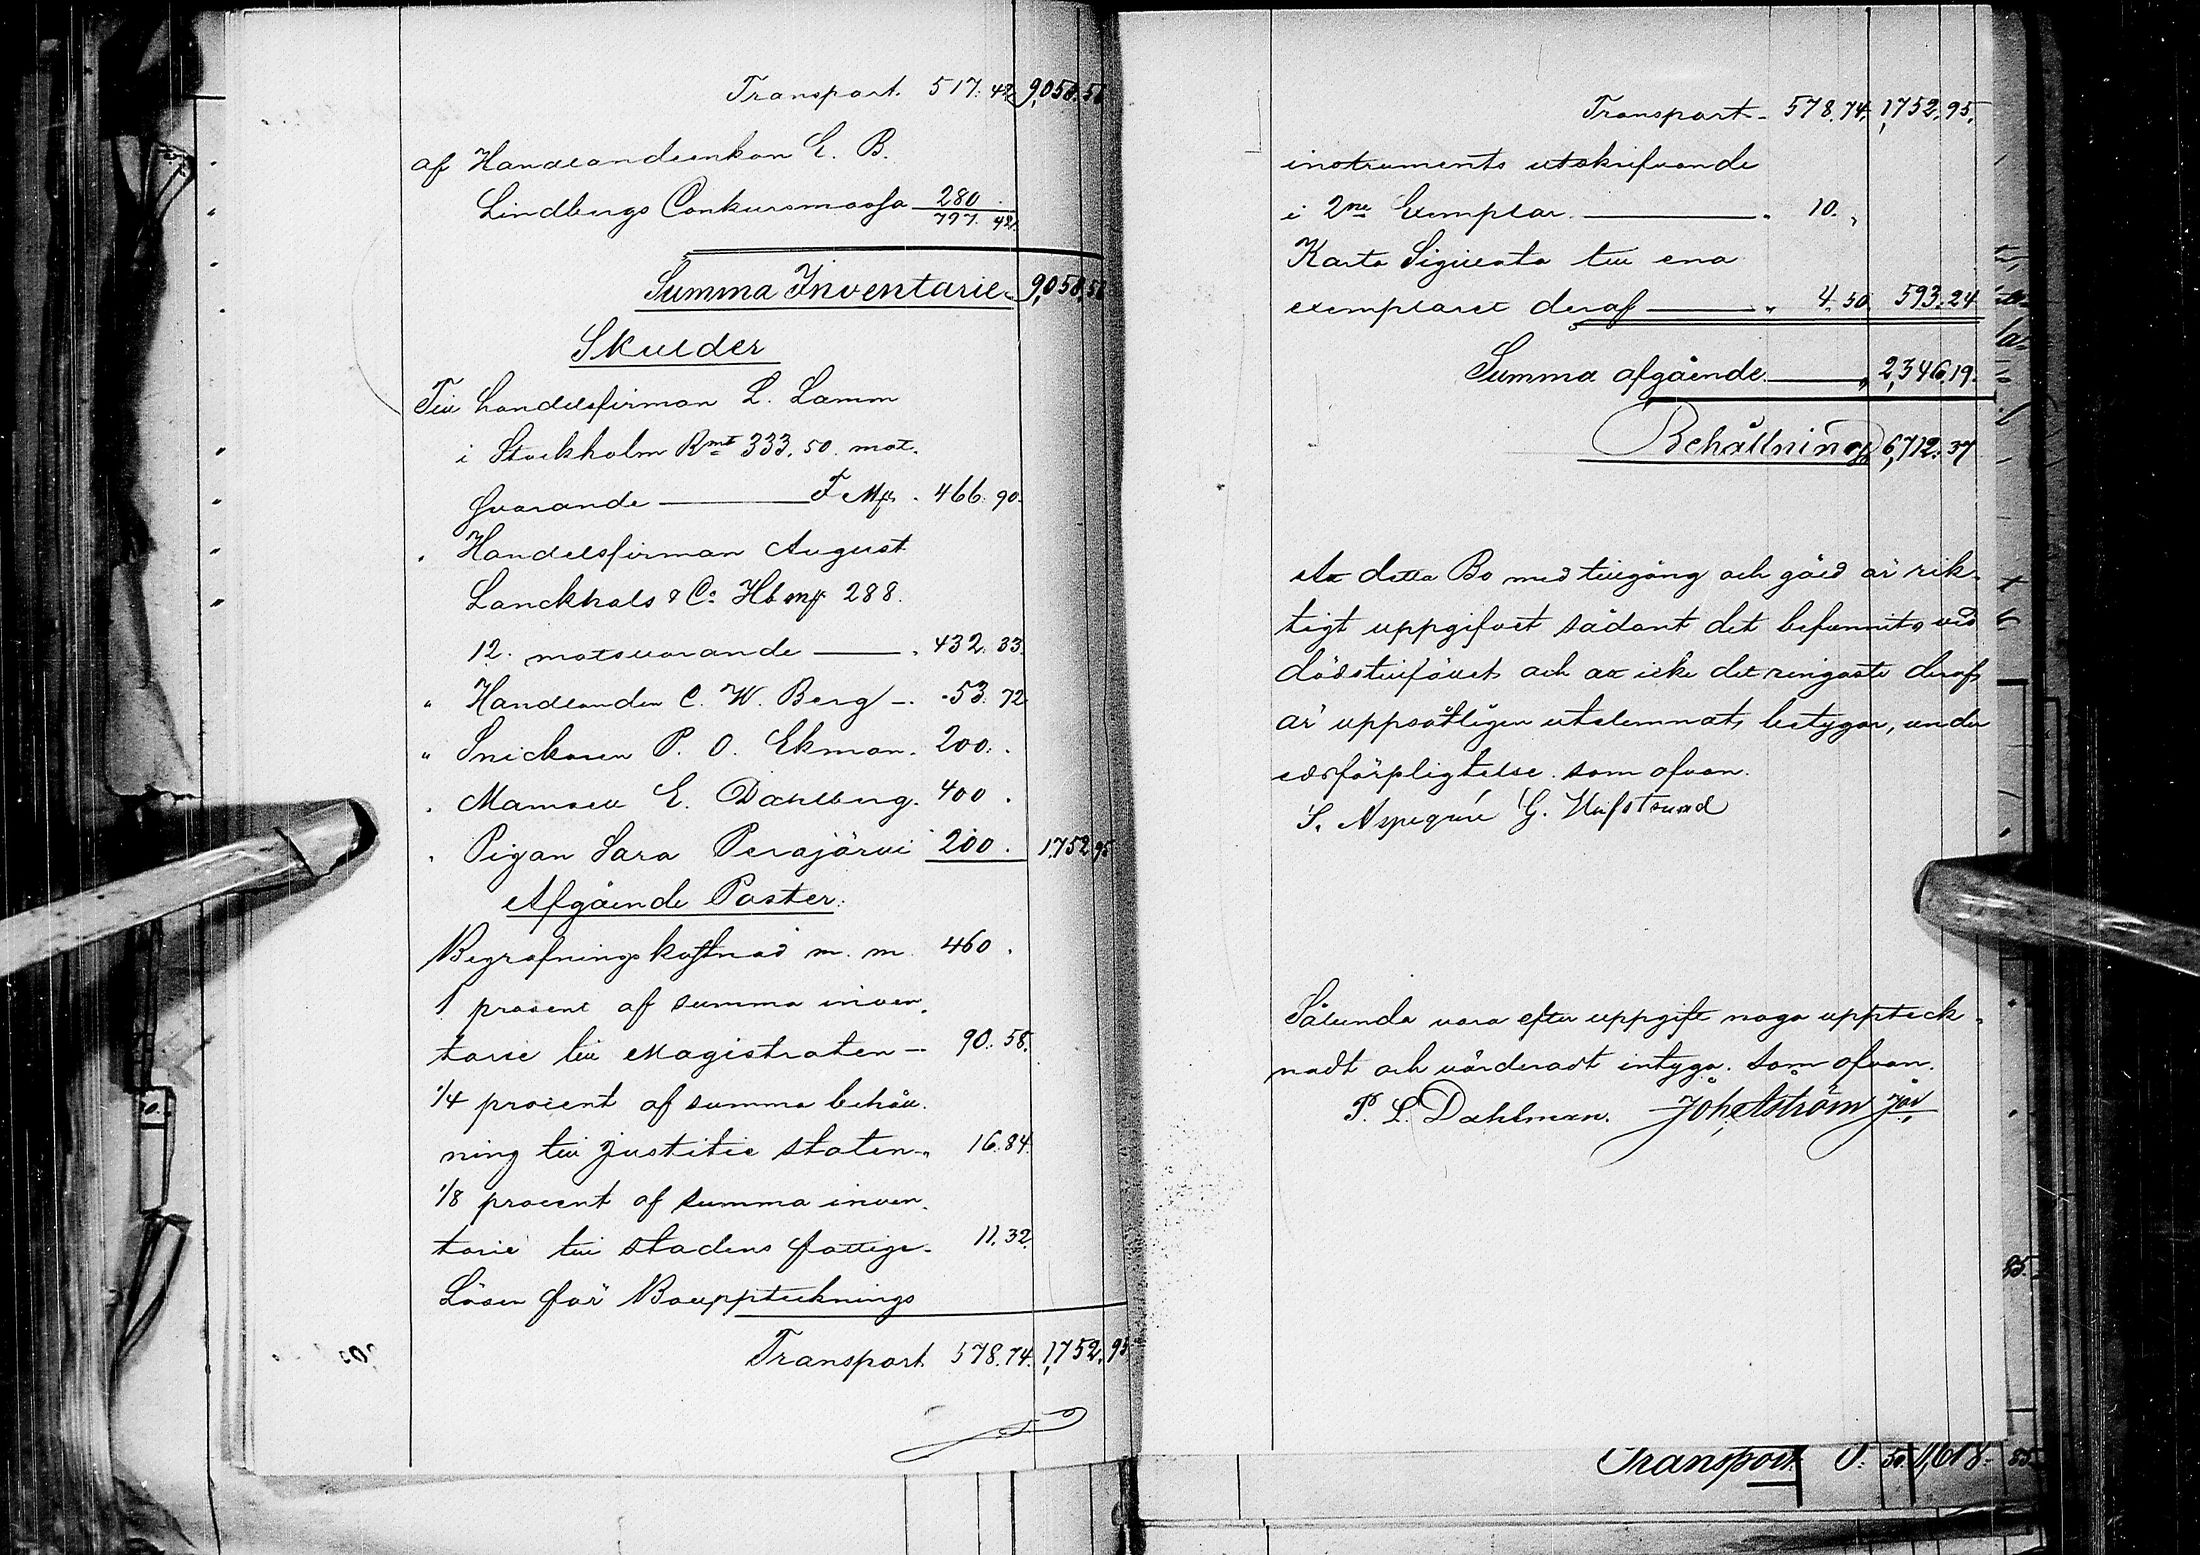 Transport. 517. 42. 9,058. 56
af Handlandeenkan E. B.
Lindbergs Conkursmassa 280 .
797. 42.
Summa Inventarie. 9,058. 56
Skulder
Till handelsfirman L. Lamm
i Stockholm Rmt 333. 50. mot.
svarande F Mk. 466. 90.
. Handelsfirman August
Lanckhals & Co Hb mk 288.
12. motsvarande . 432. 33.
" Handlanden C. W. Berg . 53. 72
" Snickaren P. O. Ekman. 200. .
. Mamsell E. Dahlberg. 400 .
. Pigan Sara Perajärvi 200. 1,752 95
Afgående Poster.
Begrafningskostnad m. m. 460 .
1 procent af summa inven.
tarie till Magistraten 90. 58.
1/4 procent af summa behåll.
ning till Justitie staten " 16. 84.
1/8 procent af summa inven.
tarie till stadens fattige. 11. 32.
Lösen för Boupptecknings
Transport 578. 74. 1,752. 95
Transport 578. 74. 1,752. 95.
instruments utskrifvande
i 2ne Exemplar " 10. "
Karta Sigillata till ena
exemplaret deraf " 4. 50. 593. 24
Summa afgående " 2,346. 19.
Behållning 6,712. 37
At detta Bo med tillgång och gäld är rik.
tigt uppgifvet sådant det befunnits vid
dödstillfället och att icke det ringaste deraf
är uppsåtligen utelemnat, betygar, under
edsförpligtelse som ofvan.
S. Aspegrén G. Hufstrand
Sålunda vara efter uppgift noga uppteck.
nadt och värderadt intyga. Som ofvan.
P. L. Dahlman. Joh. Åström Jör
Transport 1,618. 85